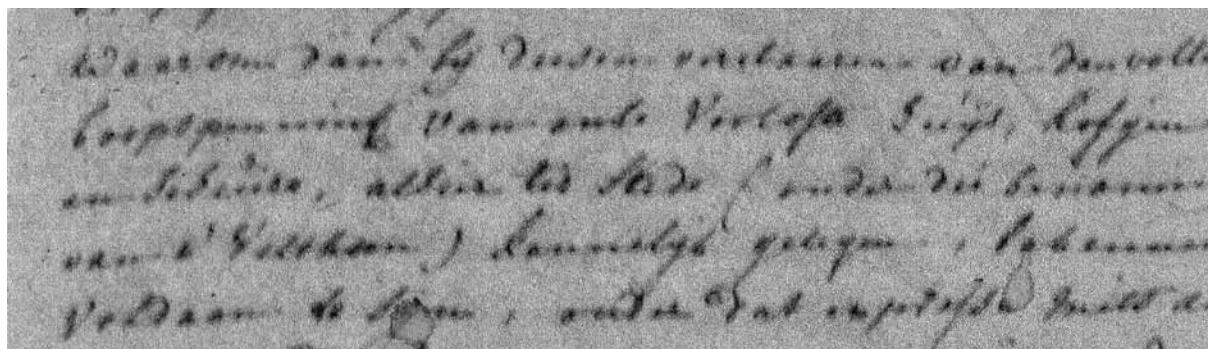 waarom dan bij deesen verclaaren van den volle
koopspenning van onse Vercofte Huijs, Hofgen
en Schuire, alhier ter stede ( onder die benaemin
van 't Velthoen ) kennelijk gelegen, bekennen
Voldaan te sijn, onder dat expresse